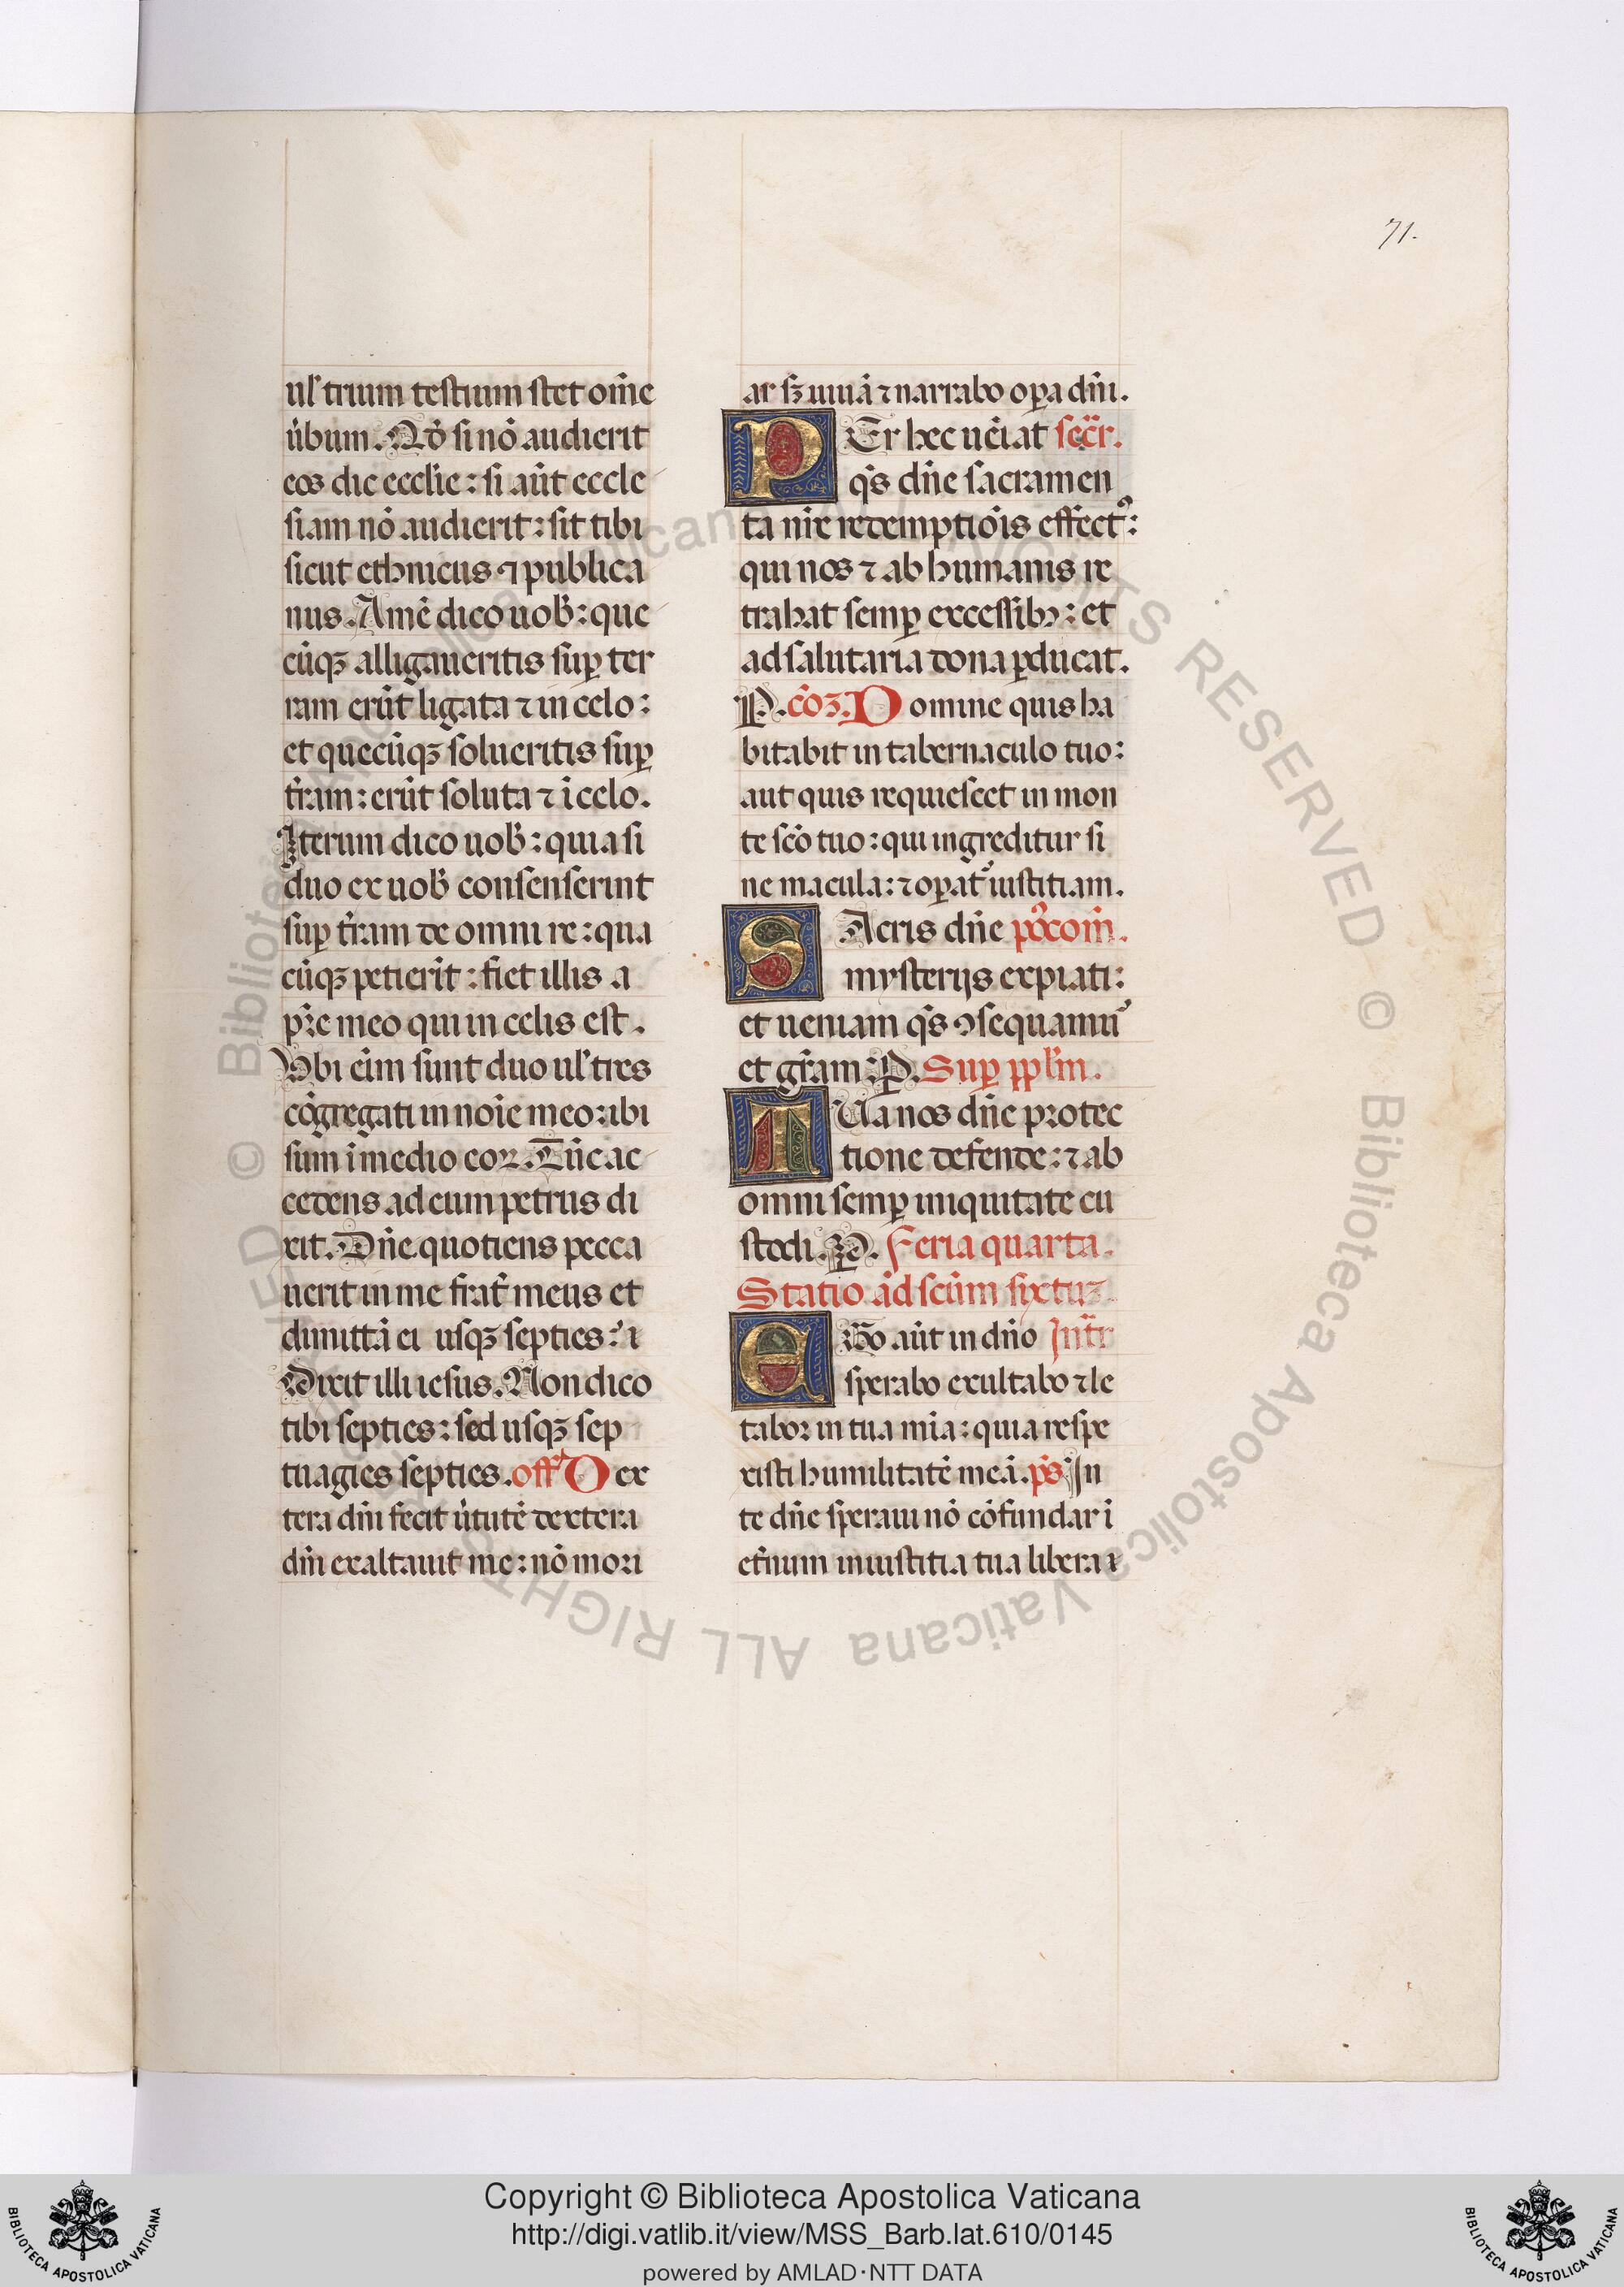 71.
ul' trium testium stet om̄e
ūbum. Qd̓ si nō audierit
eos dic ecclīe: si aūt eccle
siam nō audierit: sit tibi
sicut ethnicus ⁊ publica
nus. Amē dico uob̄: que
cūqꝫ alligaueritis suꝑ ter
ram erūt ligata ⁊ in celo:
et quecūqꝫ solueritis suꝑ
t̄ram: erūt soluta ⁊ ī celo.
Iterum dico uob̄: quia si
duo ex uob̄ consenserint
suꝑ t̄ram de omni re: qua
cūqꝫ petierīt: fiet illis a
pr̄e meo qui in celis est.
Vbi eīm sunt duo ul' tres
cōgregati in noīe meo: ibi
sum ī medio eoꝝ. Tūc ac
cedens ad eum petrus di
xit. Dn̄e quotiens pecca
uerit in me frat̄ meus et
dimittā ei usqꝫ septies:
Dixit illi iesus. Non dico
tibi septies: sed usqꝫ sep
tuagies septies. off̄ Dex
tera dn̄i fecit ūtutē dextera
dn̄i exaltauit me: nō mori
ar sꝫ uiuā ⁊ narrabo oꝑa dn̄i.
PEr hec uēiat secr̄.
qs̄ dn̄e sacramen
ta nr̄e redemptiōis effectꝰ:
qui nos ⁊ ab humanis re
trahat semꝑ excessibꝫ: et
ad salutaria dona ꝑducat.
P. cōꝫ. Domine quis ha
bitabit in tabernaculo tuo:
aut quis requiescet in mon
te scō tuo: qui ingreditur si
ne macula: ⁊ oꝑat᷑ iustitiam.
SAcris dn̄e p̄ꝯcom̄.
mysterijs expiati:
et ueniam qs̄ ꝯsequamu᷑
et gr̄am: P. Suꝑ ppl̄m.
TUa nos dn̄e protec
tione defende: ⁊ ab
omni semꝑ iniquitate cu
stodi. P. Feria quarta.
Statio ad scūm sixtuꝫ
EGo aūt in dn̄o Intr̄
sperabo exultabo ⁊ le
tabor in tua mīa: quia respe
xisti humilitatē meā. ps̄ In
te dn̄e speraui nō cōfundar ī
et̄num in iustitia tua libera
Copyright © Biblioteca Apostolica Vaticana
http://digi.vatlib.it/view/MSS_Barb.lat.610/0145
powered by AMLAD·NTT DATA